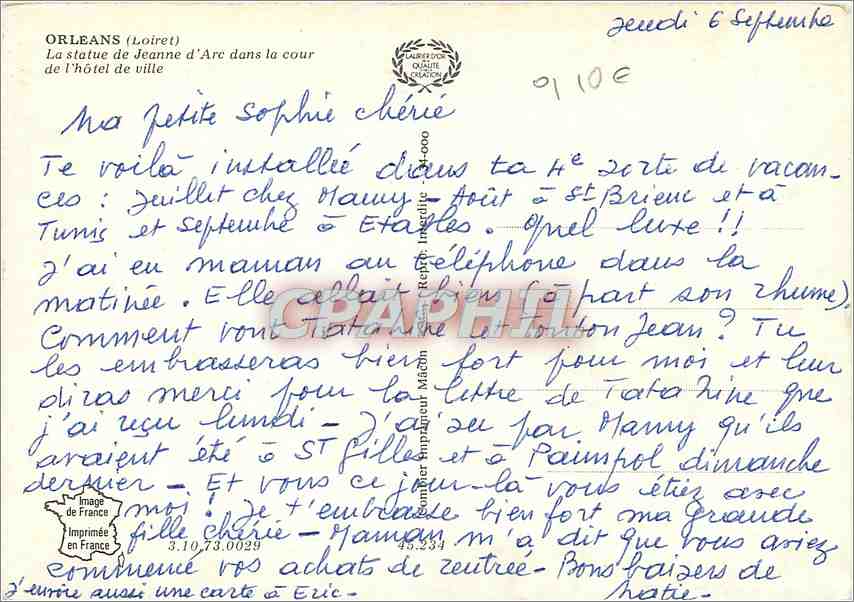 Jeudi 6 Septembre
ORLEANS (Loiret)
La statue de Jeanne d'Arc dans la cour
de l'hôtel de ville
LAURIER D'OR
DE LA
QUALITÉ
CRÉATION
10€
Ma petite Sophie chérie
Te voilà installée dans ta 4e sorte de vacan-
ces : Juillet chez Mamy - Août à St Brieuc et à
Tunis et Septembre à Etables. Quel luxe !!
J'ai eu maman au téléphone dans la
matinée. Elle allait bien (à part son rhume).
Comment vont Tata Nine et Tonton Jean ? Tu
les embrasseras bien fort pour moi et leur
diras merci pour la lettre de Tata Nine que
j'ai reçu lundi - J'ai su par Mamy qu'ils
avaient été à St Gilles et à Paimpol dimanche
dernier - Et vous ce jour-là vous étiez avec
moi ! Je t'embrasse bien fort ma grande
fille chérie - Maman m'a dit que vous aviez
commencé vos achats de rentrée - Bons baisers de
Natie -
J'envoie aussi une carte à Eric -
Combier Imprimeur Mâcon
Repro. Interdite
CPAPHIL
Image
de France
Imprimée
en France
3.10.73.0029
45.234